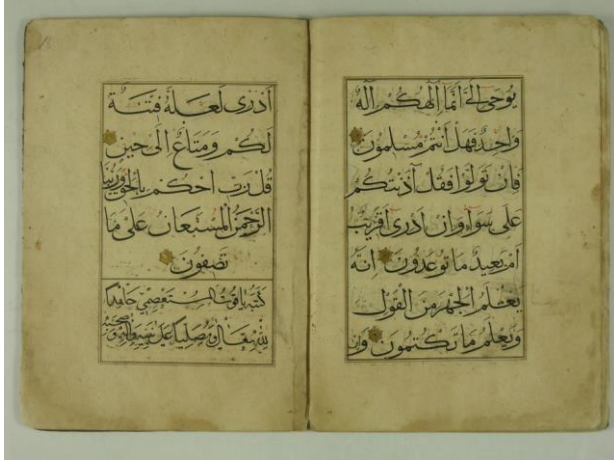 يُوحَى إِلَيَّ أَنَّمَا إِلَهُكُمْ إِلَهٌ
وَاحِدٌ فَهَلْ أَنتُمْ مُسْلِمُونَ
فَإِن تَوَلَّوْا فَقُلْ آذَنتُكُمْ
عَلَى سَوَاءٍ وَإِنْ أَدْرِي أَقَرِيبٌ
أَمْ بَعِيدٌ مَا تُوعَدُونَ إِنَّهُ
يَعْلَمُ الْجَهْرَ مِنَ الْقَوْلِ
وَيَعْلَمُ مَا تَكْتُمُونَ وَإِنْ
أَدْرِي لَعَلَّهُ فِتْنَةٌ
لَكُمْ وَمَتَاعٌ إِلَى حِينٍ
قُل رَبِّ احْكُم بِالْحَقِّ وَرَبُّنَا
الرَّحْمَنُ الْمُسْتَعَانُ عَلَى مَا
تَصِفُونَ
كتبه ياقوت المستعصمي حامدا
لله تعالى ومصليا على